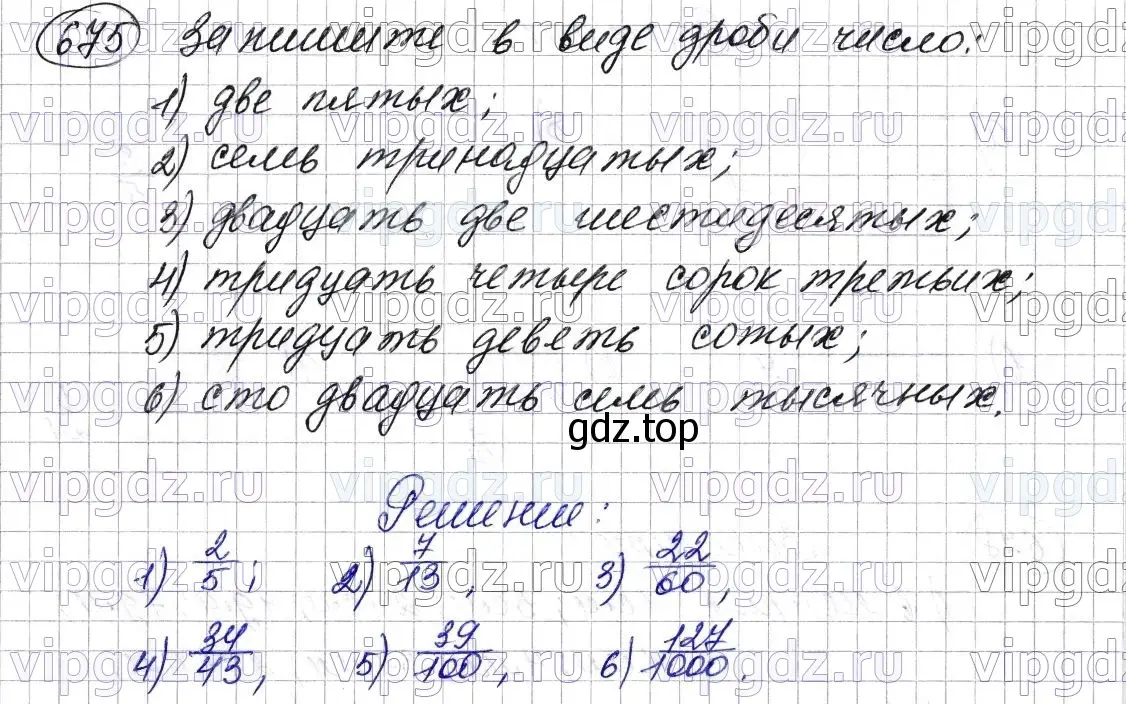 675 Запишите в виде дроби число:
1) две пятых;
2) семь тринадцатых;
3) двадцать две шестидесятых;
4) тридцать четыре сорок третьих;
5) тридцать девять сотых;
6) сто двадцать семь тысячных.
gdz.top
Решение:
1) 2/5; 2) 7/13, 3) 22/60,
4) 34/43, 5) 39/100, 6) 127/1000.
vipgdz.ru